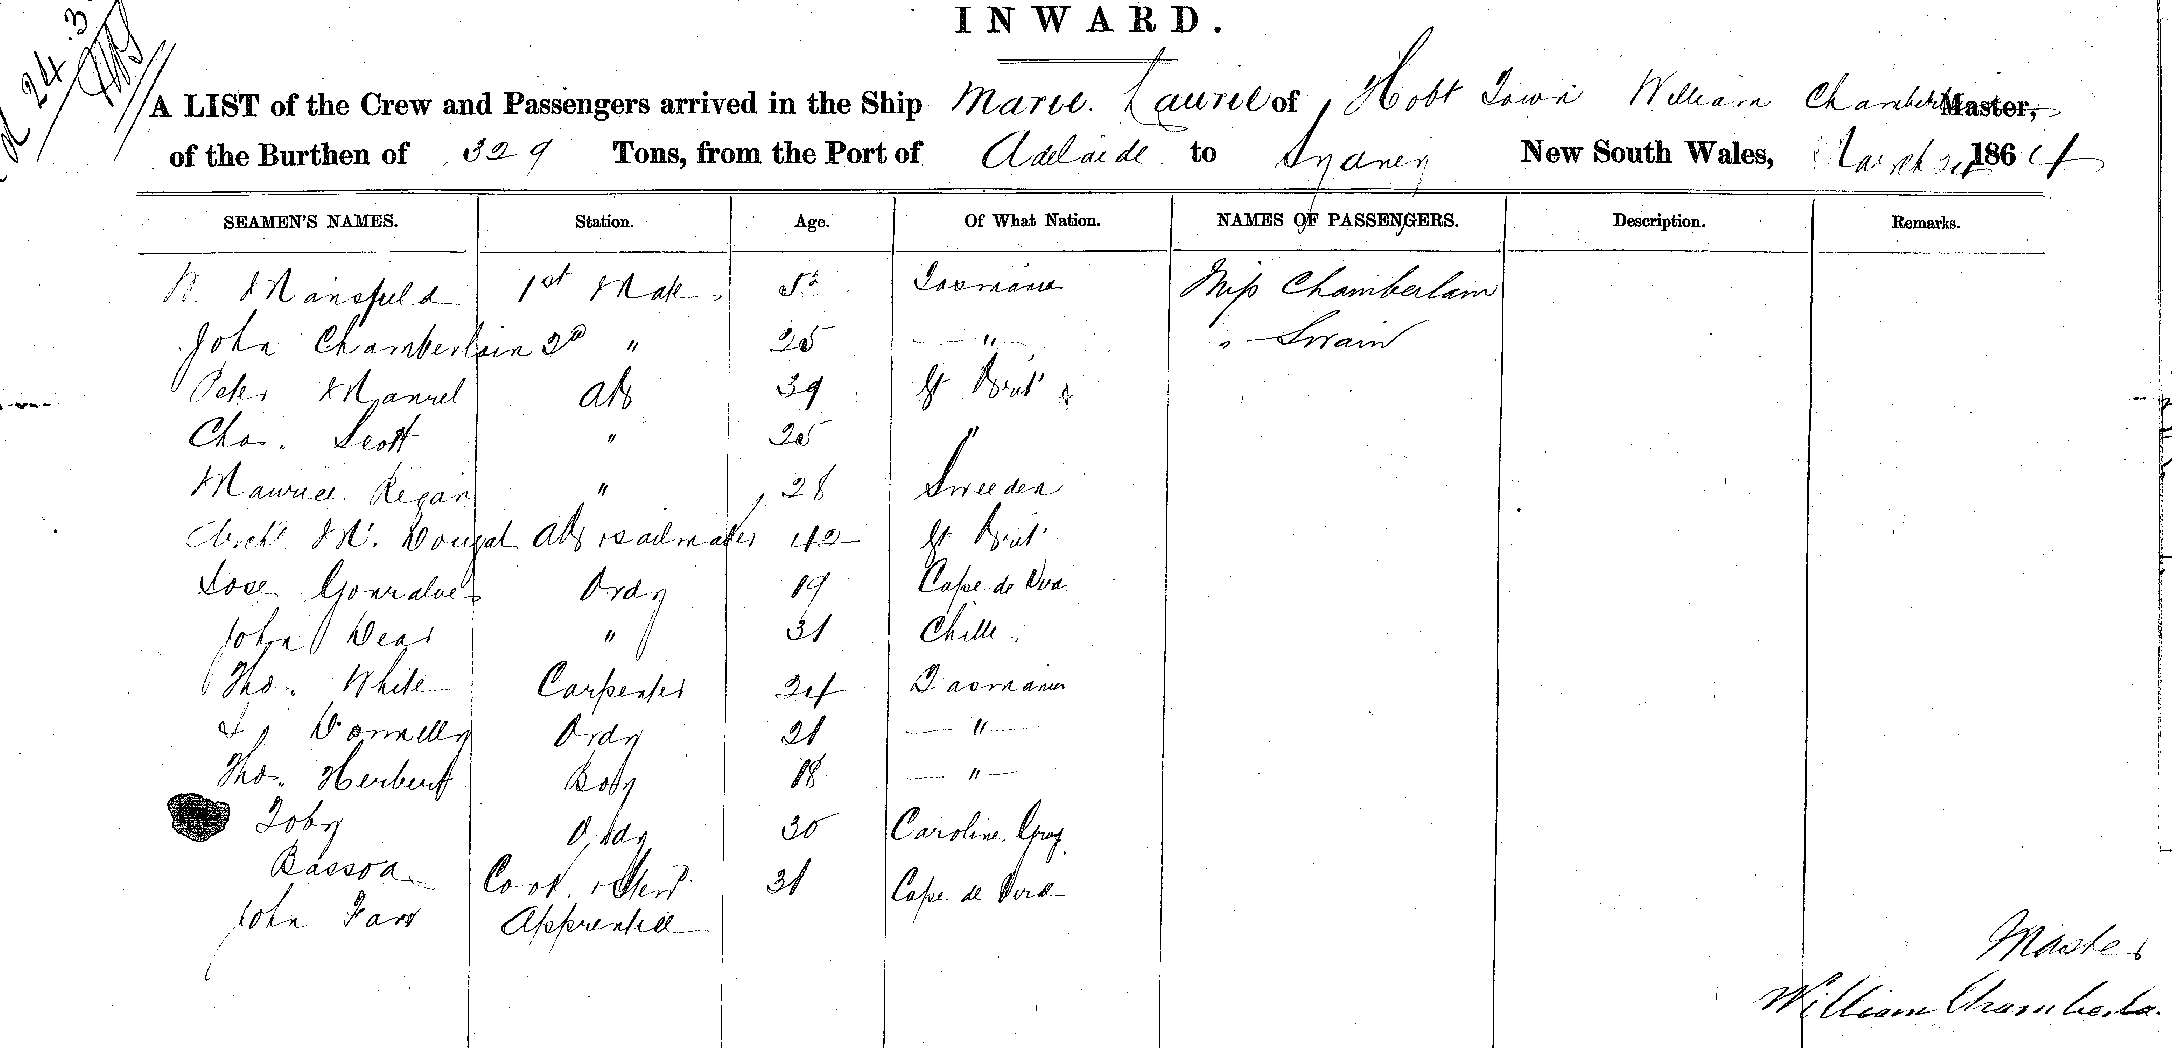 24.3
INWARD.
A LIST of the Crew and Passengers arrived in the Ship Marie Laurie of Hobt Town William Chamberlain Master,
of the Burthen of 329 Tons, from the Port of Adelaide to Sydney New South Wales, March 1864
SEAMEN'S NAMES. Station. Age. Of What Nation. NAMES OF PASSENGERS. Description. Remarks.
Mansfield 1st Mate 52 Tasmania Miss Chamberlain
John Chamberlain 2d " 25 — " — " Swain
Peter Manuel AB 39 Gt Brit
Chas. Scott " 25 "
Maurice Regan " 28 Sweeden
Archd. Mc. Dougal AB & sailmaker 42 Gt Brit
Jose Gonzalves Ordy 19 Cape de Verd
John Dear " 31 Chille
Thos. White Carpenter 24 Tasmania
Donnelly Ordy 21 — " —
Thos. Herbert Boy 18 — " —
Toby Ordy 30 Caroline Group
Bassoa Cook & Stewd 31 Cape de Verd
John Farr Apprentice
Master
William Chamberla